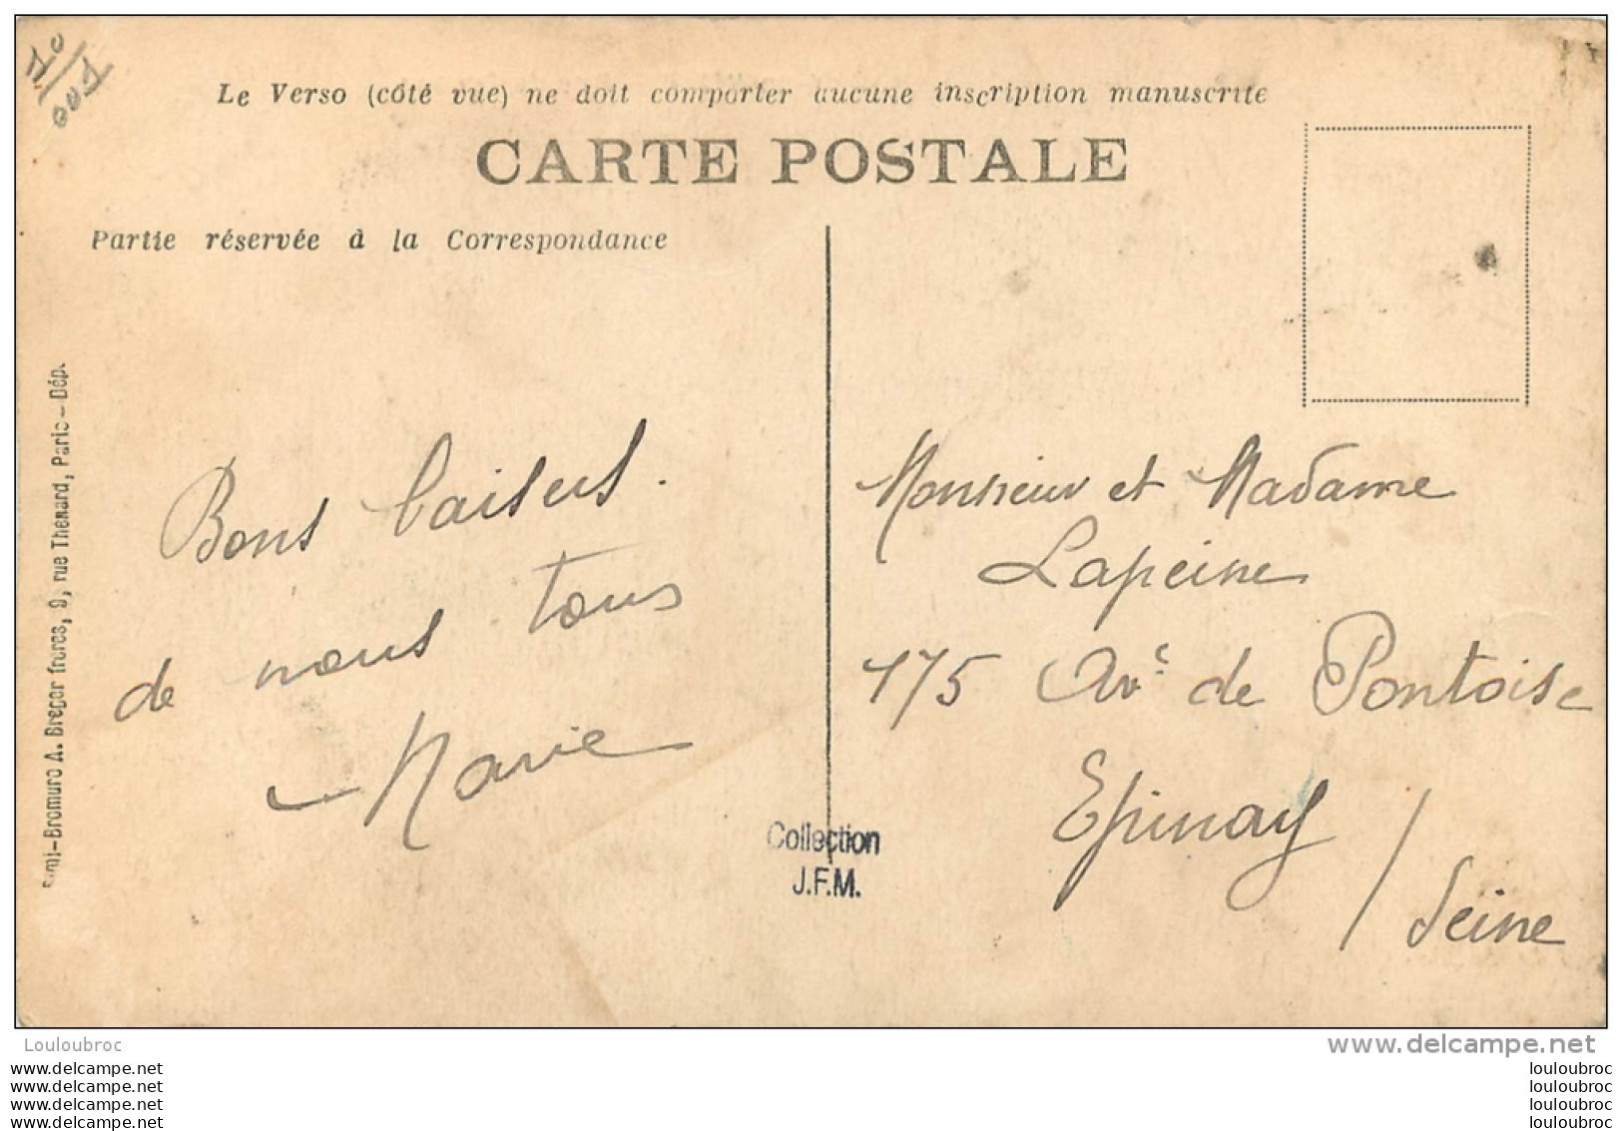 Le Verso (côté vue) ne doit comporter aucune inscription manuscrite
CARTE POSTALE
Partie réservée à la Correspondance
Bons baisers.
de nous tous
Marie
Monsieur et Madame
Lapeine
175 Ave de Pontoise
Epinay / Seine
Simi-Bromure A. Breger frères, 9, rue Thénard, Paris - Dép.
Collection
J.F.M.
Louloubroc
www.delcampe.net
www.delcampe.net
www.delcampe.net
www.delcampe.net
www.delcampe.net
louloubroc
louloubroc
louloubroc
louloubroc